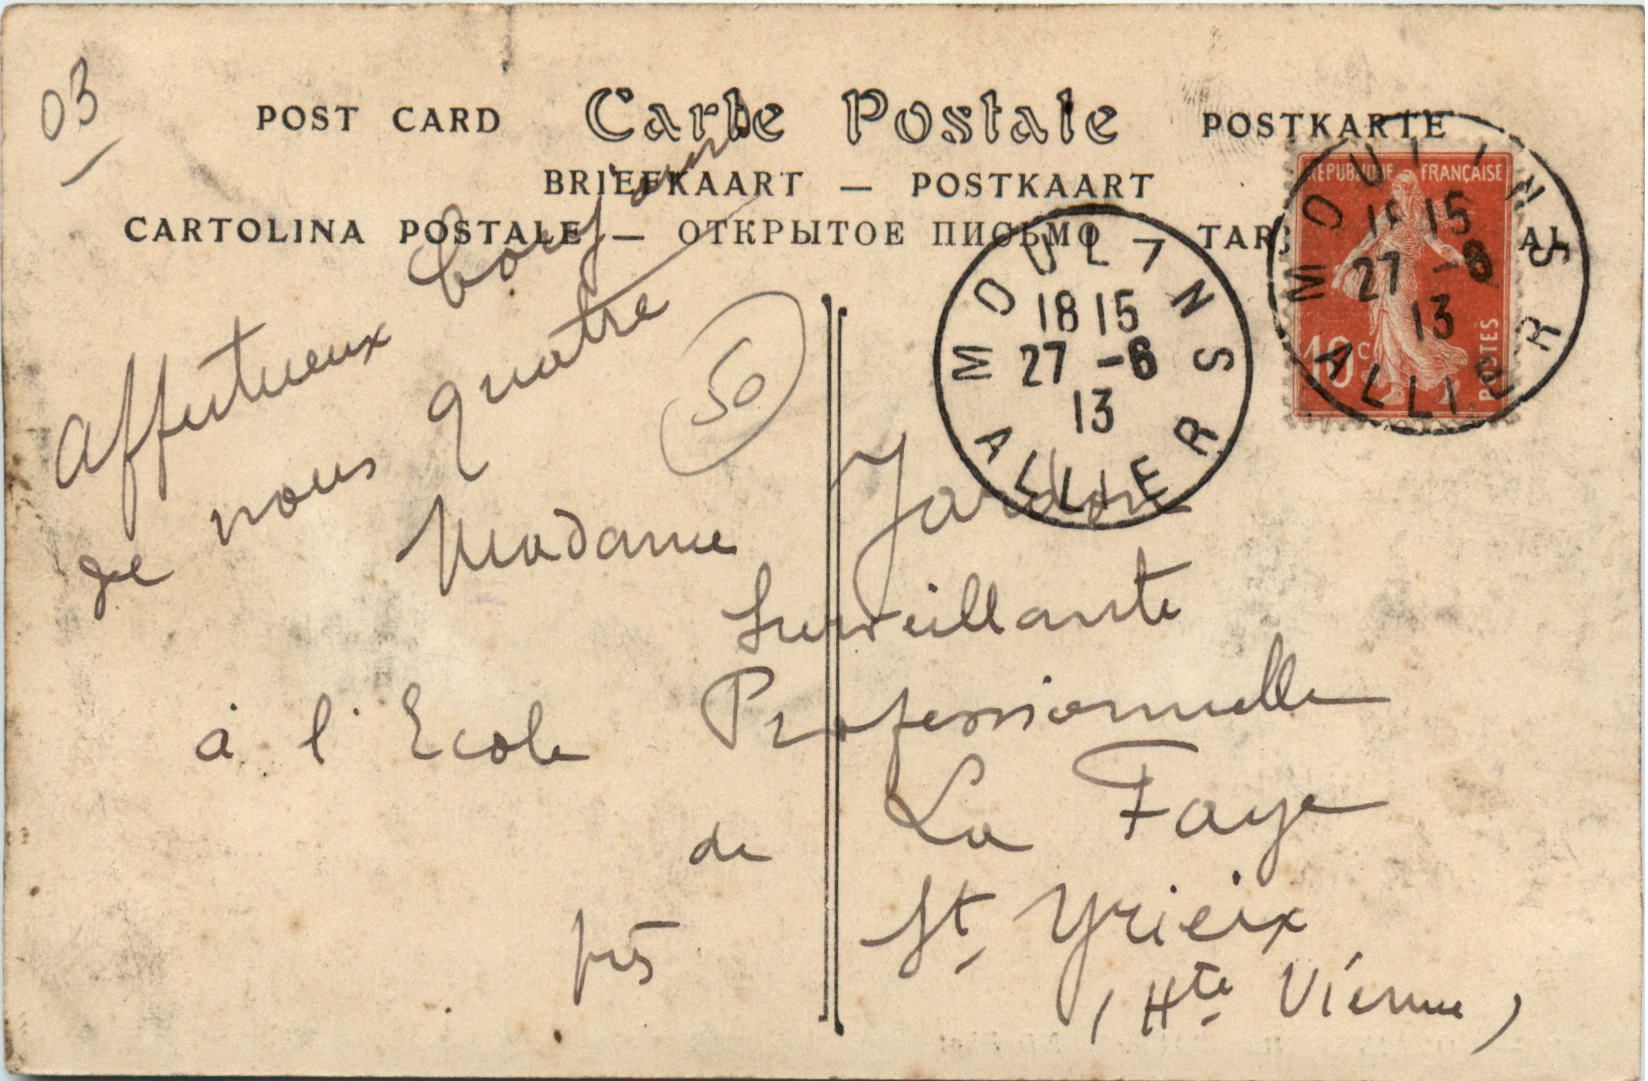 03
POST CARD Carte Postale POSTKARTE
BRIEFKAART — POSTKAART
CARTOLINA POSTALE — ОТКРЫТОЕ ПИСЬМО — TAR AL
RÉPUBLIQUE FRANÇAISE
10 c
POSTES
MOULINS
18 15
27 -6
13
ALLIER
MOULINS
18 15
27 -6
13
ALLIER
Affectueux bonjour
de nous quatre
50
Madame
Surveillante
à l'Ecole Professionnelle
de La Faye
près St Yrieix
(Hte Vienne)